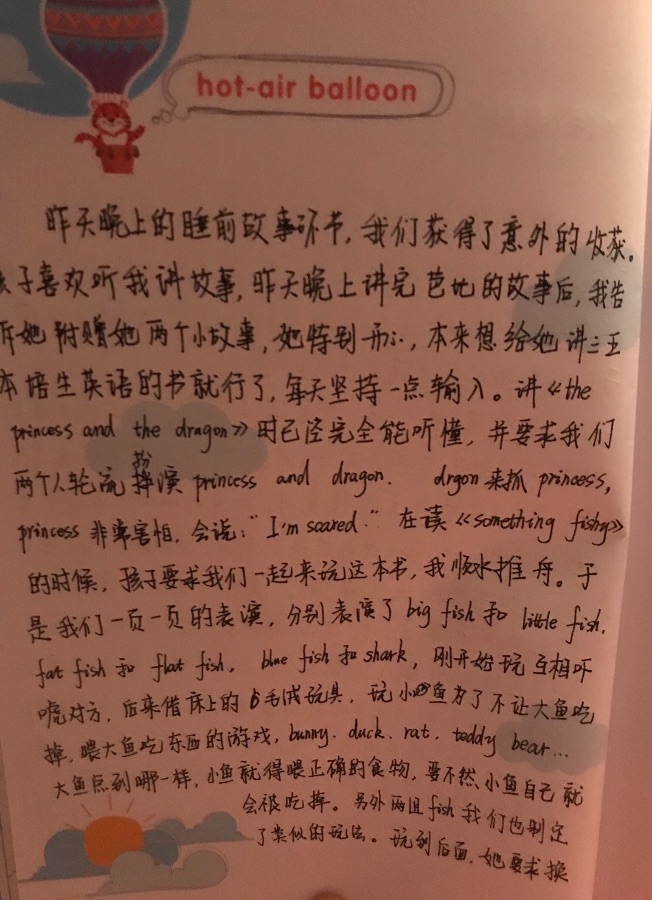 hot-air balloon
昨天晚上的睡前故事环节，我们获得了意外的收获。
孩子喜欢听我讲故事，昨天晚上讲完芭比的故事后，我告
诉她附赠她两个小故事，她特别开心，本来想给她讲三五
本培生英语的书就行了，每天坚持一点输入。讲《the
princess and the dragon》时已经完全能听懂，并要求我们
两个人轮流扮演 princess and dragon. drgon来抓 princess,
princess 非常害怕，会说：“I'm scared.” 在读《something fishy》
的时候，孩子要求我们一起来玩这本书，我顺水推舟。于
是我们一页一页的表演，分别表演了 big fish 和 little fish,
fat fish 和 flat fish, blue fish 和 shark，刚开始玩互相吓
唬对方，后来借床上的毛绒玩具，玩小鱼为了不让大鱼吃
掉，喂大鱼吃东西的游戏，bunny. duck. rat. teddy bear...
大鱼点到哪一样，小鱼就得喂正确的食物，要不然小鱼自己就
会被吃掉。另外两组 fish 我们也制定
了类似的玩法。玩到后面，她要求换